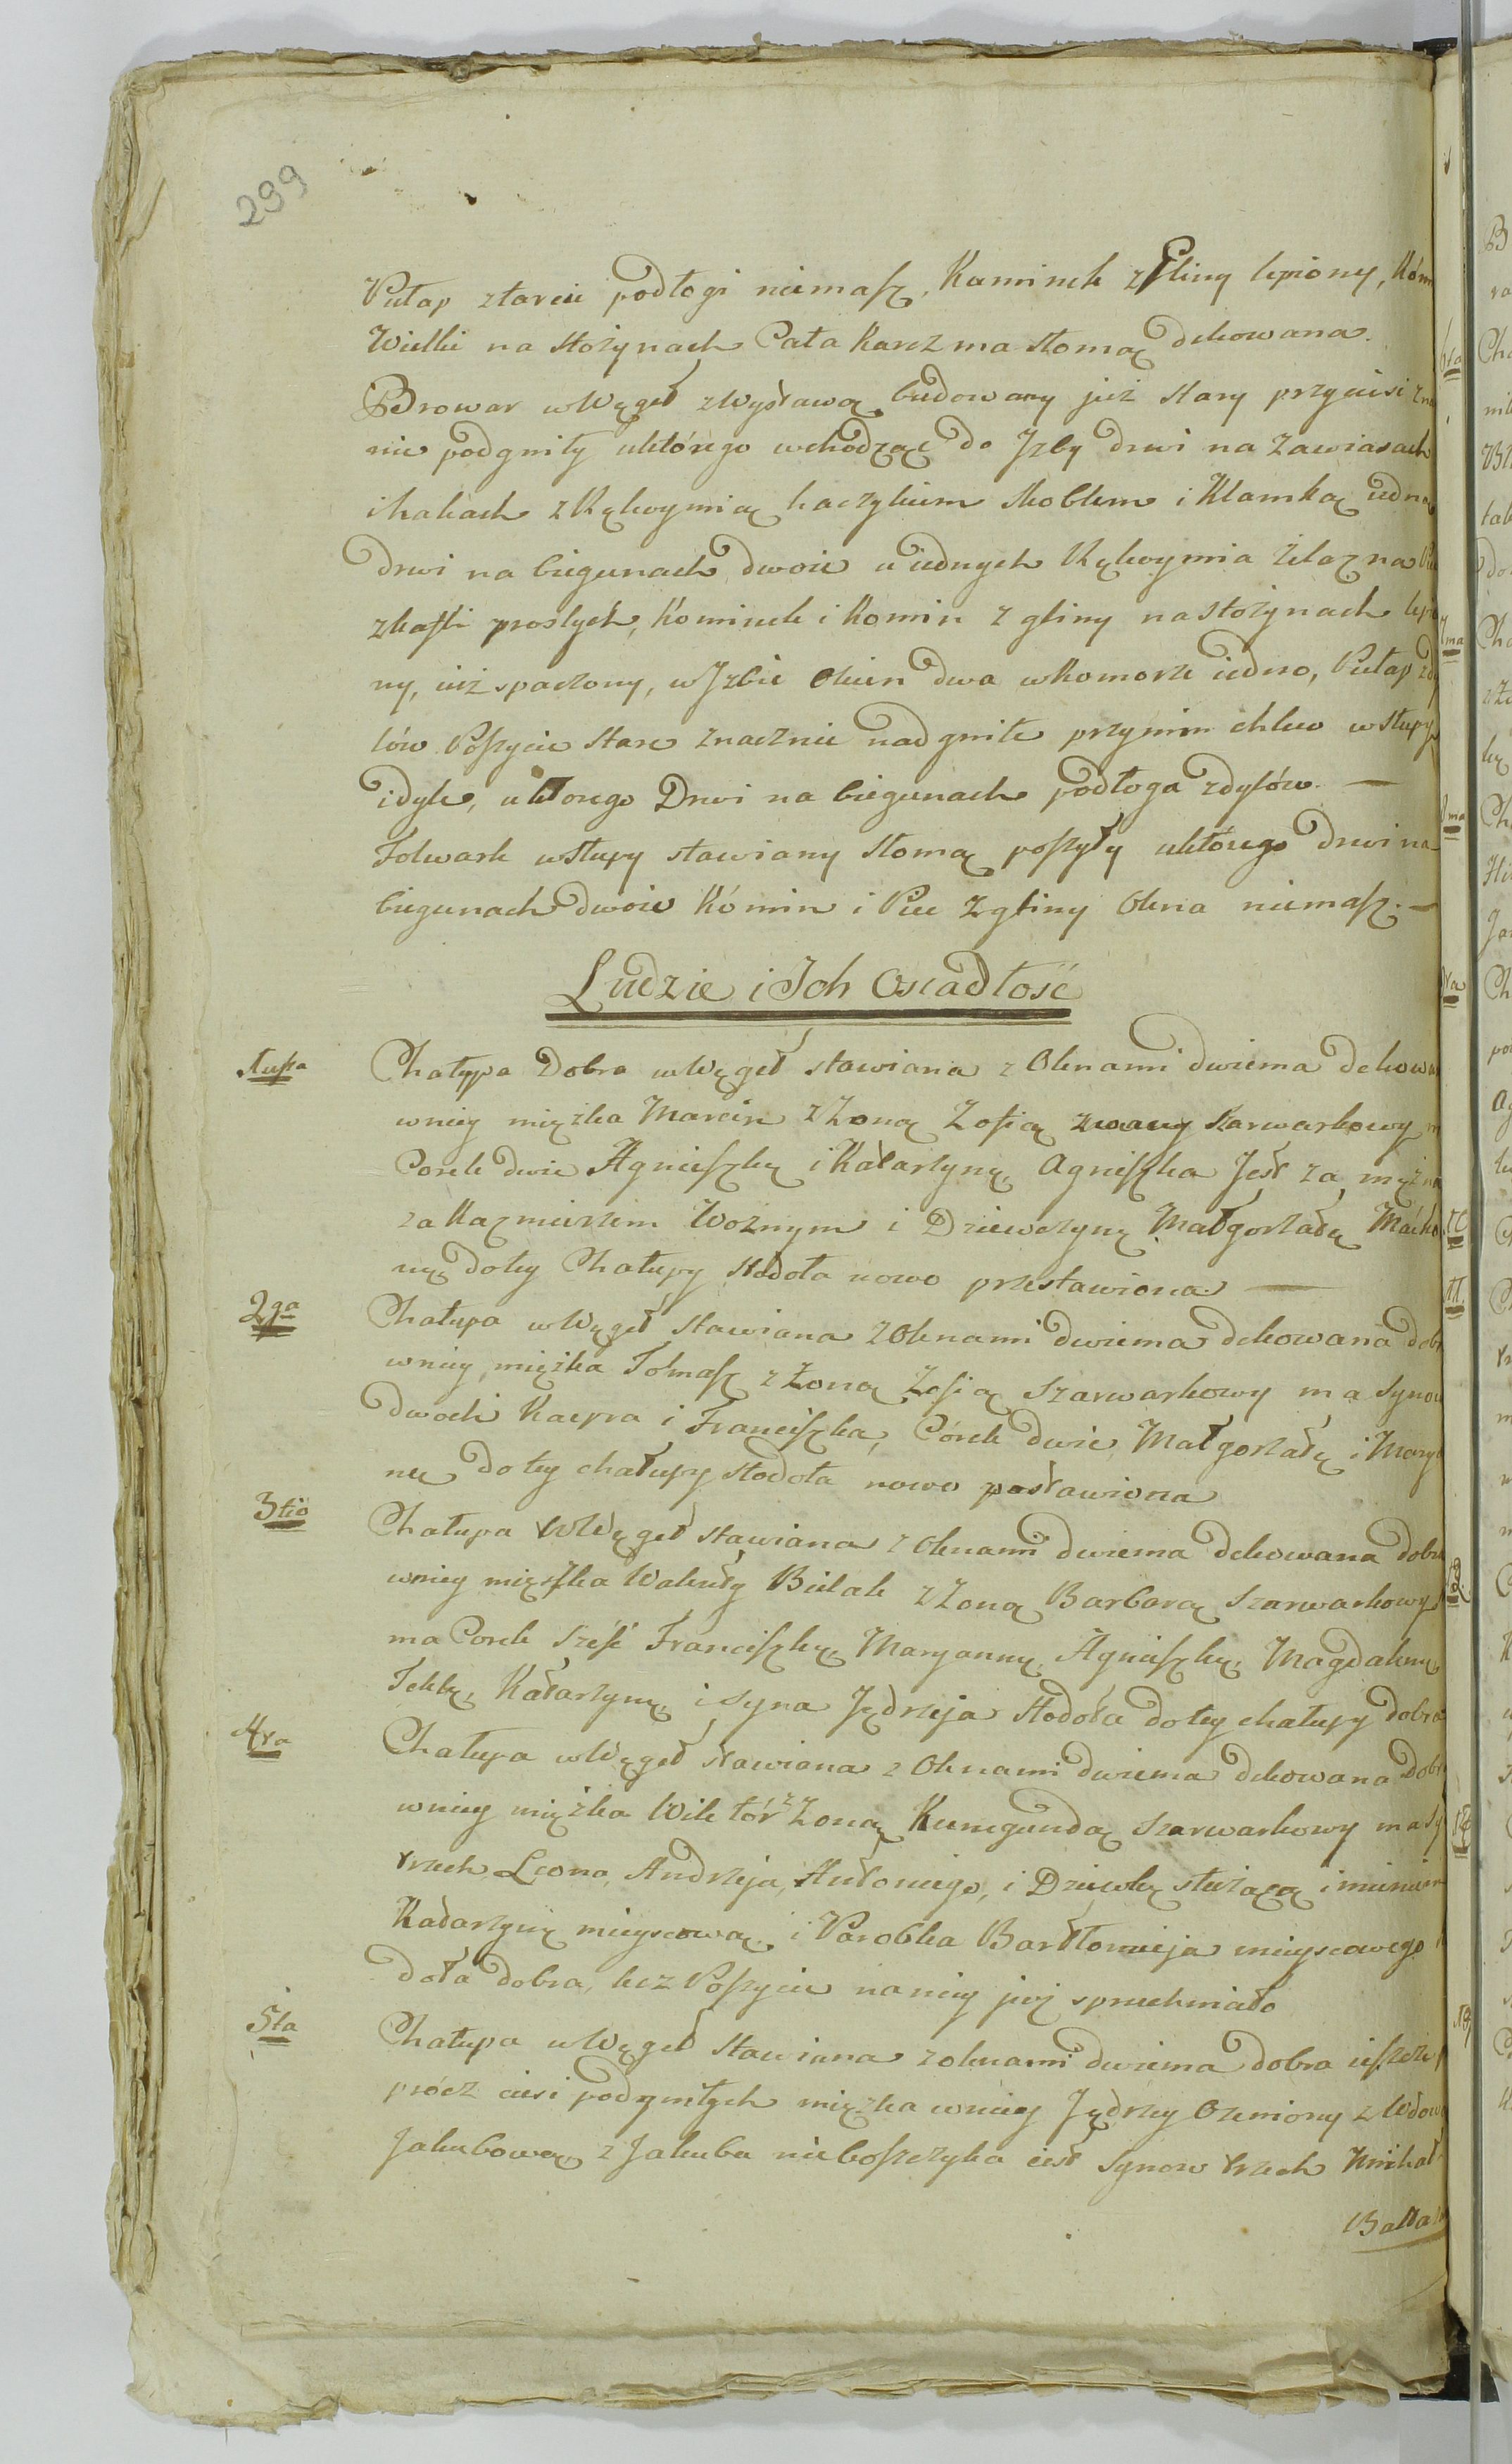 299
Pułap ztarcic podłogi niemasz, Kominek z Gliny lepiony, Kóm
Wielki na stożynach Cała Karczma słomą dekowana.
Browar w Węgeł z Wystawą budowany już stary przyciesi zna
nie podgniły uktórego wchodząc do Jzby drwi na zawiasach
i hakach z Rękoymią haczykiem skoblem i Klamką iedne
drwi na biegunach dwoie u iednych Rękoymia żelazna
zkafli prostych, Kominek i Komin z gliny na stożynach lepio
ny, iuż spaczony, w Jzbie Okien dwa w komorze iedno, Pułap zdy
lów Poszycie stare znacznie nadgniłe przynim chlew w słupy
i dyle, uktorego Drwi na biegunach podłoga zdylów. —
Folwark w słupy stawiany słomą poszyty uktórego drwi na
biegunach dwoie Kómin i Piec z gliny Okna niemasz. —
Ludzie i Ich Osiadłość
1ussa
Chałupa Dobra w Węgeł stawiana z Oknami dwiema dekowa
wniey mięszka Marcin z Zoną Zofią zwany szarwarkowy m
Corek dwie Agnieszkę i Katarzynę, Agnieszka Jest za męzna
za Kazmierzem Woznym i Dziewczynę Małgorzatę Maćko
nę do tey Chałupy stodoła nowo przestawiona —
2ga
Chałupa w Węgeł stawiana z Oknami dwiema dekowana dobr
wniey mięszka Tomasz z Zoną Zofią szarwarkowy ma Synow
dwoch Kacpra i Franciszka, Córek dwie Małgorzatę i Mary
nę do tey chałupy stodoła nowo postawiona
3tio
Chałupa w Węgeł stawiana z Oknami dwiema dekowana dobra
wniey mięszka Walenty Bielak z Zoną Barbarą szarwarkowy
ma Corek sześć Franciszkę, Maryannę, Agnieszkę, Magdalenę
Teklę, Katarzynę, i syna Jędrzeja stodoła do tey chałupy dobra
4ta
Chałupa w Węgeł stawiana z Oknami dwiema dekowana Dobr
wniey mięszka Wiktór z Zoną Kunegundą szarwarkowy ma Sy
trzech Leona, Andrzeja, Antoniego, i Dziewkę służącą imieniem
Katarzynę mieyscową, i Parobka Bartłomieja mieyscowego
doła dobra, lecz Poszycie na niey już spruchniało
5ta
Chałupa w Węgeł stawiana z oknami dwiema dobra ieszcze
prócz ciesi podgniłych mięszka wniey Jędrzey Ozeniony z Wdow
Jakubową, z Jakuba nieboszczyka iest Synow trzech Michał
Balta